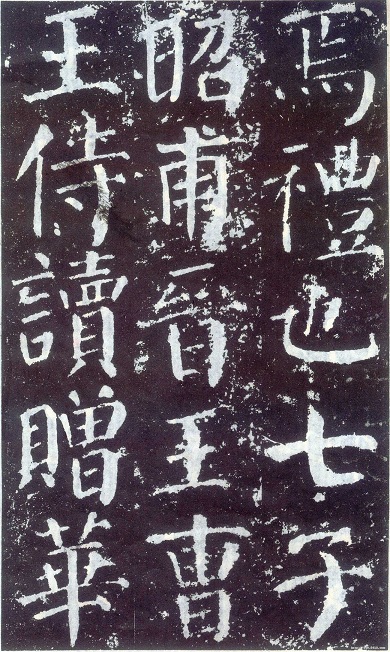 焉禮也七子
昭甫晉王曹
王侍讀贈華